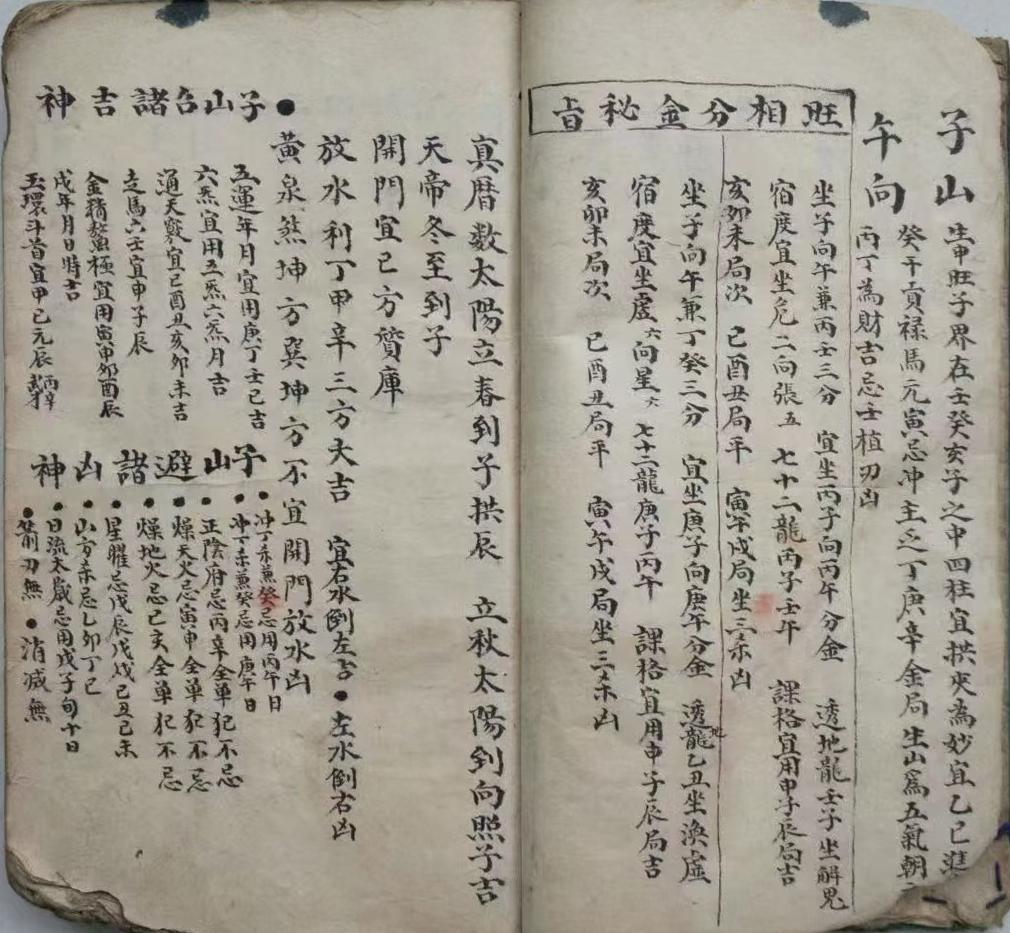 子山
午向
生申旺子界在壬癸亥子之中四柱宜拱夾為妙宜乙巳
癸干貢祿馬元寅忌冲主乏丁庚辛金局生山為五氣朝
丙丁為財吉忌壬植刃凶
旺相分金秘旨
坐子向午兼丙壬三分 宜坐丙子向丙午分金 透地龍壬子坐解鬼
宿度宜坐危二向張五 七十二龍丙子壬午 課格宜用申子辰局吉
亥卯未局次 巳酉丑局平 寅午戌局坐三杀凶
坐子向午兼丁癸三分 宜坐庚子向庚午分金 透地龍乙丑坐渙虛
宿度宜坐虛六向星六 七十二龍庚子丙午 課格宜用申子辰局吉
亥卯未局次 巳酉丑局平 寅午戌局坐三杀凶
真曆数太陽立春到子拱辰 立秋太陽到向照子吉
天帝冬至到子
開門宜巳方贊庫
放水利丁甲辛三方大吉 宜右水倒左吉●左水倒右凶
黃泉煞坤方巽坤方不宜開門放水凶
●子山召諸吉神
五運年月宜用庚丁壬己吉
六炁宜用五炁六炁月吉
通天竅宜巳酉丑亥卯未吉
走馬六壬宜申子辰
金精鰲極宜用寅申卯酉辰
戌年月日時吉
玉環斗首宜甲己元辰
子山避諸凶神
●冲丁杀兼癸忌用丙午日
●冲丁杀兼癸忌用庚午日
●正陰府忌丙辛全单犯不忌
●燥天火忌寅申全单犯不忌
●燥地火忌己亥全单犯不忌
●星曜忌戊辰戊戌己丑己未
●山方杀忌乙卯丁巳
●日流太歲忌用戊子旬十日
●箭刃無●消滅無